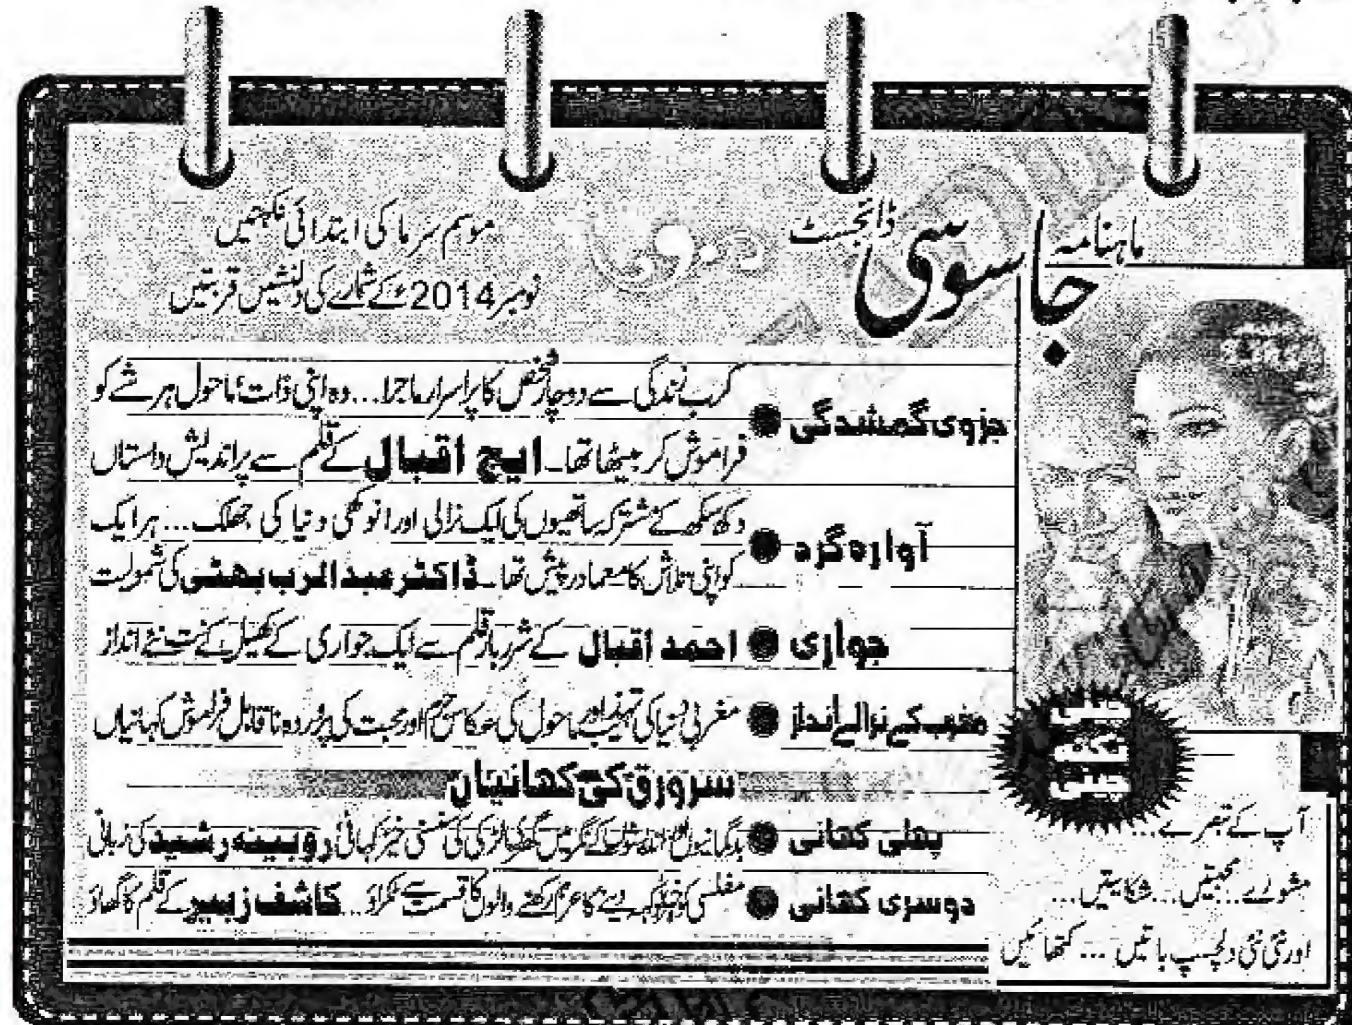 ماہنامہ
جاسوسی
ڈائجسٹ
موسم سرما کی ابتدائی نکہتیں
نومبر 2014ء کے شمارے کی دلنشیں قربتیں
جزوی گمشدگی ● کرب زندگی سے دوچار شخص کا پراسرار ماجرا... وہ اپنی ذات، ماحول ہر شے کو
فراموش کر بیٹھا تھا۔ ایچ اقبال کے قلم سے پراندیش داستاں
آوارہ گرد ● دکھ سکھ کے مشترکہ ساتھیوں کی ایک نرالی اور انوکھی دنیا کی جھلک... ہر ایک
کو اپنی تلاش کا معما درپیش تھا۔ ڈاکٹر عبدالرب بھٹی کی شمولیت
جواری ● احمد اقبال کے شرربار قلم سے ایک جواری کے کھیل کے نت نئے انداز
مغرب کے نرالے انداز ● مغربی دنیا کی تہذیب اور ماحول کی عکاس جرم اور محبت کی پروردہ ناقابل فراموش کہانیاں
سرورق کی کہانیاں
پہلی کہانی ● بدگمانیوں اور اندیشوں کے نگر میں گھری لڑکی کی سنسنی خیز کہانی روبینہ رشید کی زبانی
دوسری کہانی ● مفلسی کو دینے کا عزم رکھنے والوں کا قسمت سے ٹکراؤ... کاشف زبیر کے قلم کا گھاؤ
چینی
نکتہ
چینی
آپ کے تبصرے...
مشورے... محبتیں... شکایتیں...
اور نئی نئی دلچسپ باتیں... کتھائیں